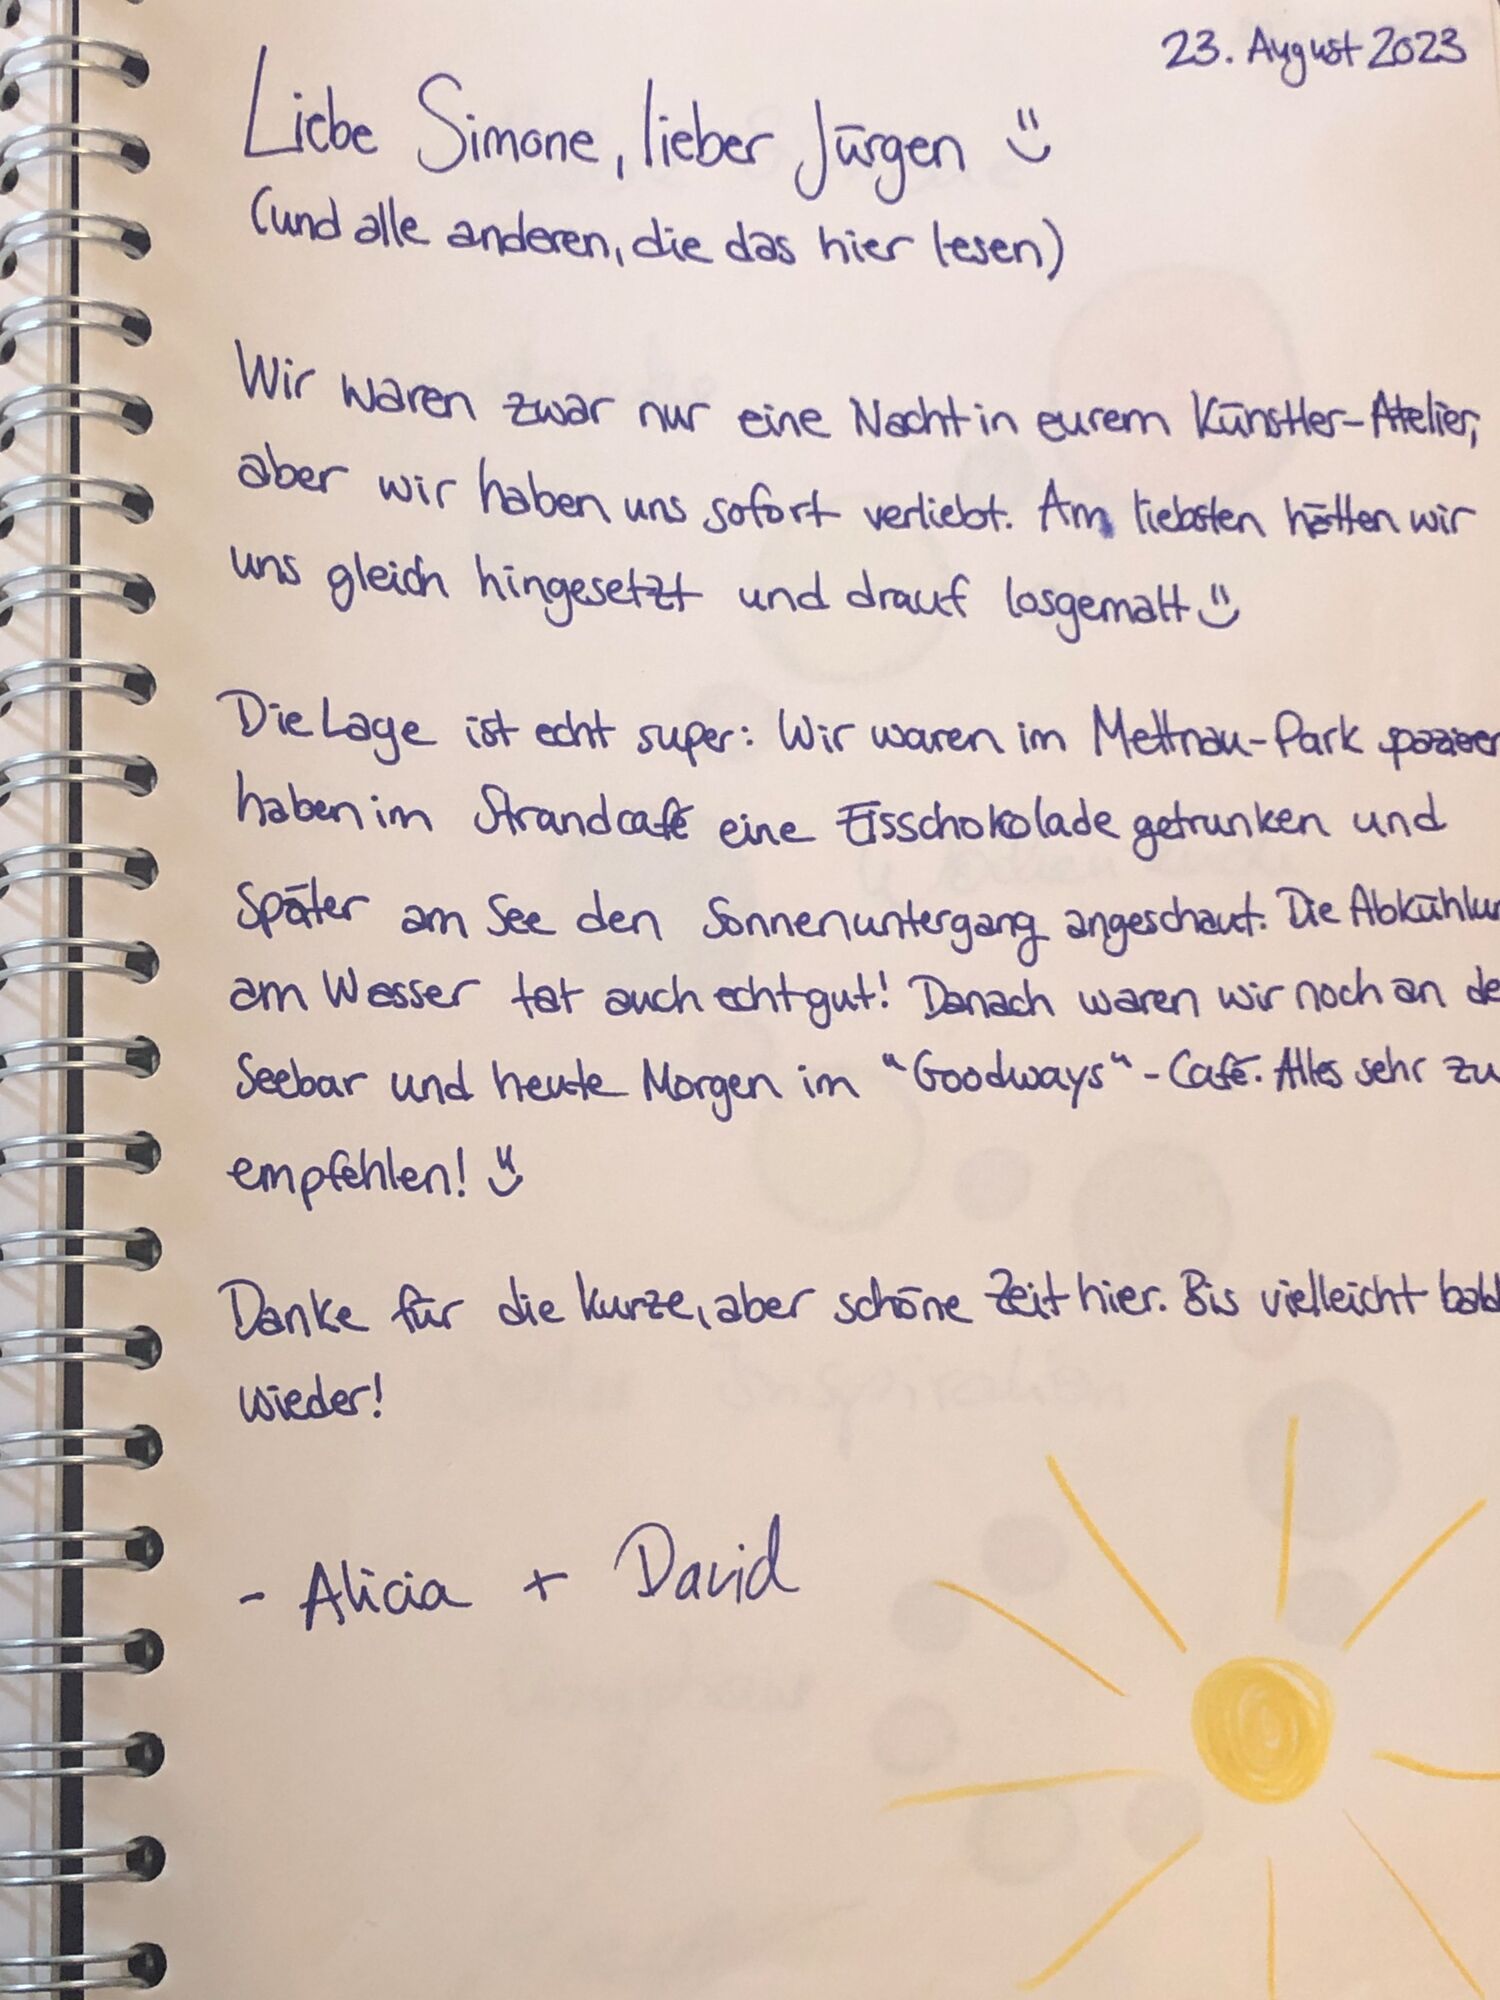 23. August 2023
Liebe Simone, lieber Jürgen
(und alle anderen, die das hier lesen)
Wir waren zwar nur eine Nacht in eurem Künstler-Atelier,
aber wir haben uns sofort verliebt. Am liebsten hätten wir
uns gleich hingesetzt und drauf losgemalt
Die Lage ist echt super: Wir waren im Mettnau-Park spazieren
haben im Strandcafé eine Eisschokolade getrunken und
später am See den Sonnenuntergang angeschaut. Die Abkühlun
am Wasser tat auch echt gut! Danach waren wir noch an de
Seebar und heute Morgen im "Goodways"-Café. Alles sehr zu
empfehlen!
Danke für die kurze, aber schöne Zeit hier. Bis vielleicht bald
wieder!
- Alicia + David